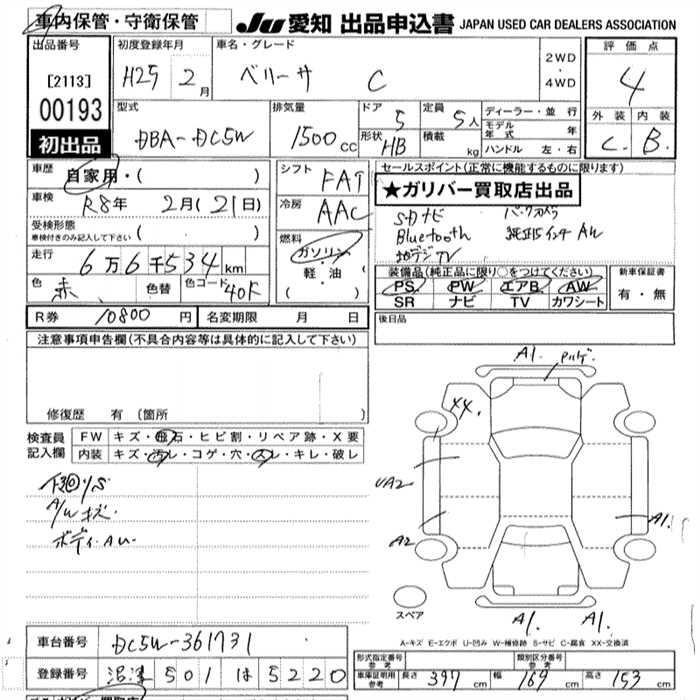 車内保管・守衛保管
JU 愛知 出品申込書 JAPAN USED CAR DEALERS ASSOCIATION
出品番号
[2113]
00193
初出品
初度登録年月
H25 2月
車名・グレード
ベリーサ C
2WD
・
4WD
評価点
4
外装 内装
C. B.
型式
DBA-DC5W
排気量
1500cc
ドア 5
定員 5人
形状 HB
積載 kg
ディーラー・並行
モデル年式 年
ハンドル 左・右
車歴
自家用・( )
車検
R8年 2月(21日)
受検形態
車検付きのみ記入して下さい ( )
走行
6万6千534km
色 赤
色替
色コード 40F
シフト
FAT
冷房
AAC
燃料
ガソリン
軽・油
( )
セールスポイント(正常に機能するものに限ります)
★ガリバー買取店出品
SDナビ バックカメラ
Bluetooth 純正15インチAW
地デジTV
装備品(純正品に限り○をつけてください)
PS PW エアB AW
SR ナビ TV カワシート
新車保証書
有・無
R券 10800円
名変期限 月 日
後日品
注意事項申告欄(不具合内容等は具体的に記入して下さい)
修復歴 有(箇所
検査員記入欄
FW キズ・飛石・ヒビ割・リペア跡・X要
内装 キズ・汚レ・コゲ・穴・スレ・キレ・破レ
下回りS
A/Wキズ
ボディAU
A1.
XX.
UA2
A2
A1.
A1. A1.
スペア
A-キズ E-エクボ U-凹み W-補修跡 S-サビ C-腐食 XX-交換済
車台番号 DC5W-361731
登録番号 沼津 501 は 5220
形式指定番号 参考
類別区分番号 参考
車庫証明用 参考 長さ 397 幅 169 高さ 153